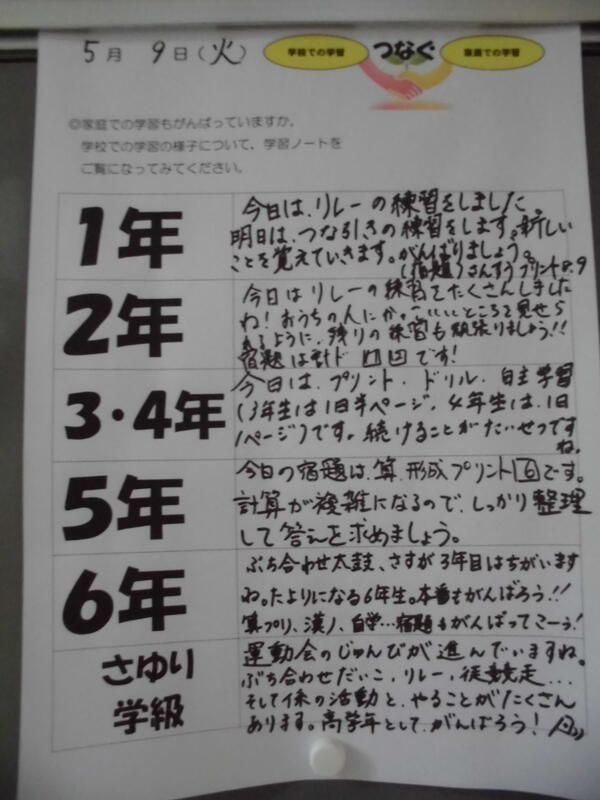 5月 9日(火)
学校での学習 つなぐ 家庭での学習
◎家庭での学習もがんばっていますか。
学校での学習の様子について、学習ノートを
ご覧になってみてください。
1年
今日は、リレーの練習をしました。
明日は、つな引きの練習をします。新しい
ことを覚えていきます。がんばりましょう。
(宿題)さんすうプリント8.9
2年
今日はリレーの練習をたくさんしました
ね!おうちの人にかっこいいところを見せら
れるように、残りの練習も頑張りましょう!!
宿題は計ド です!
3・4年
今日は、プリント・ドリル・自主学習
(3年生は1日半ページ、4年生は、1日
1ページ)です。続けることがたいせつです
ね。
5年
今日の宿題は、算、形成プリント6です。
計算が複雑になるので、しっかり整理
して答えを求めましょう。
6年
ぶち合わせ太鼓、さすが3年目はちがいます
ね。たよりになる6年生。本番もがんばろう!!
算プリ、漢ノ、自学…宿題もがんばってこーう!
さゆり
学級
運動会のじゅんびが進んでいますね。
ぶち合わせだいこ、リレー、徒競走…
そして係の活動と、やることがたくさん
あります。高学年として、がんばろう!